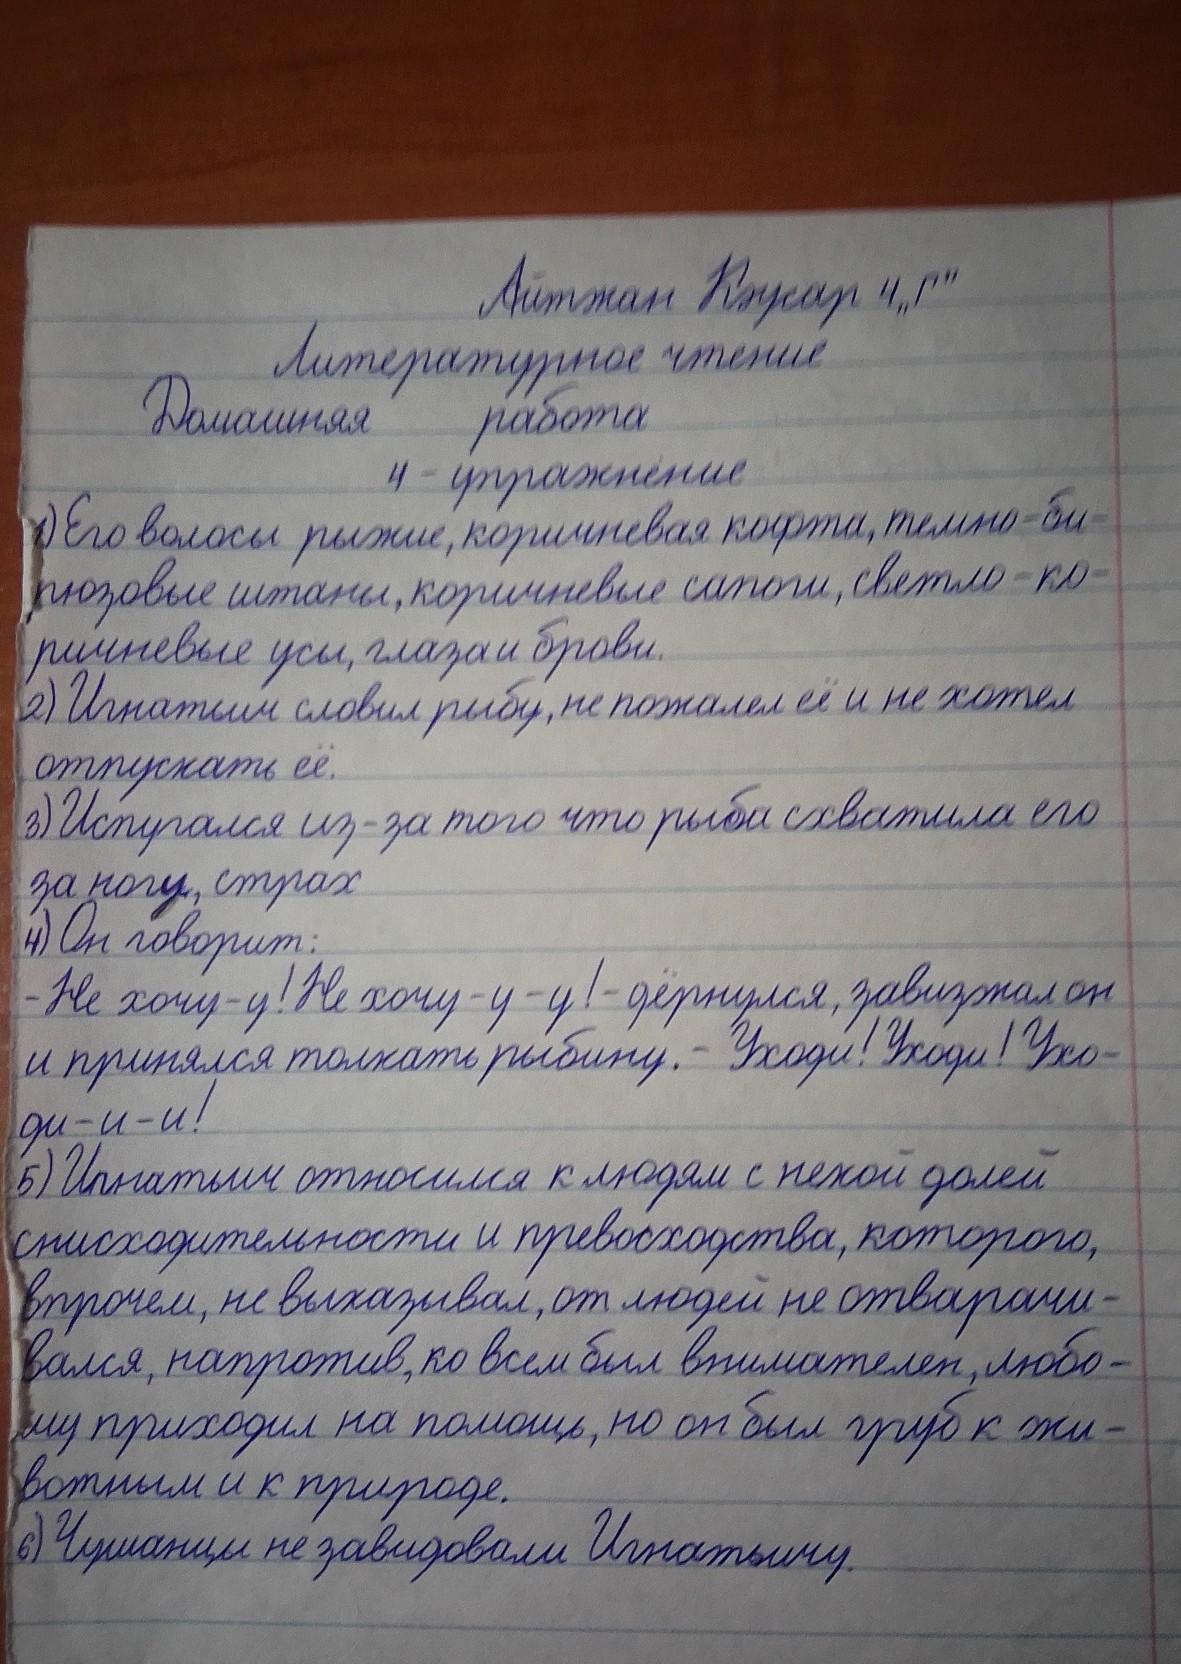 Айтжан Кжсар 4 „Г"
Литературное чтение
Домашняя работа
4 - упражнение
1) Его волосы рыжие, коричневая кофта, темно-би-
рюзовые штаны, коричневые сапоги, светло-ко-
ричневые усы, глаза и брови.
2) Игнатьич словил рыбу, не пожалел её и не хотел
отпускать её.
3) Испугался из-за того что рыба схватила его
за ногу, страх
4) Он говорит:
- Не хочу-у! Не хочу-у-у! - дёрнулся, завизжал он
и принялся толкать рыбину. - Уходи! Уходи! Ухо-
ди-и-и!
5) Игнатьич относился к людям с некой долей
снисходительности и превосходства, которого,
впрочем, не выказывал, от людей не отварачи-
вался, напротив, ко всем был внимателен, любо-
му приходил на помощь, но он был груб к жи-
вотным и к природе.
6) Чушанцы не завидовали Игнатьичу.